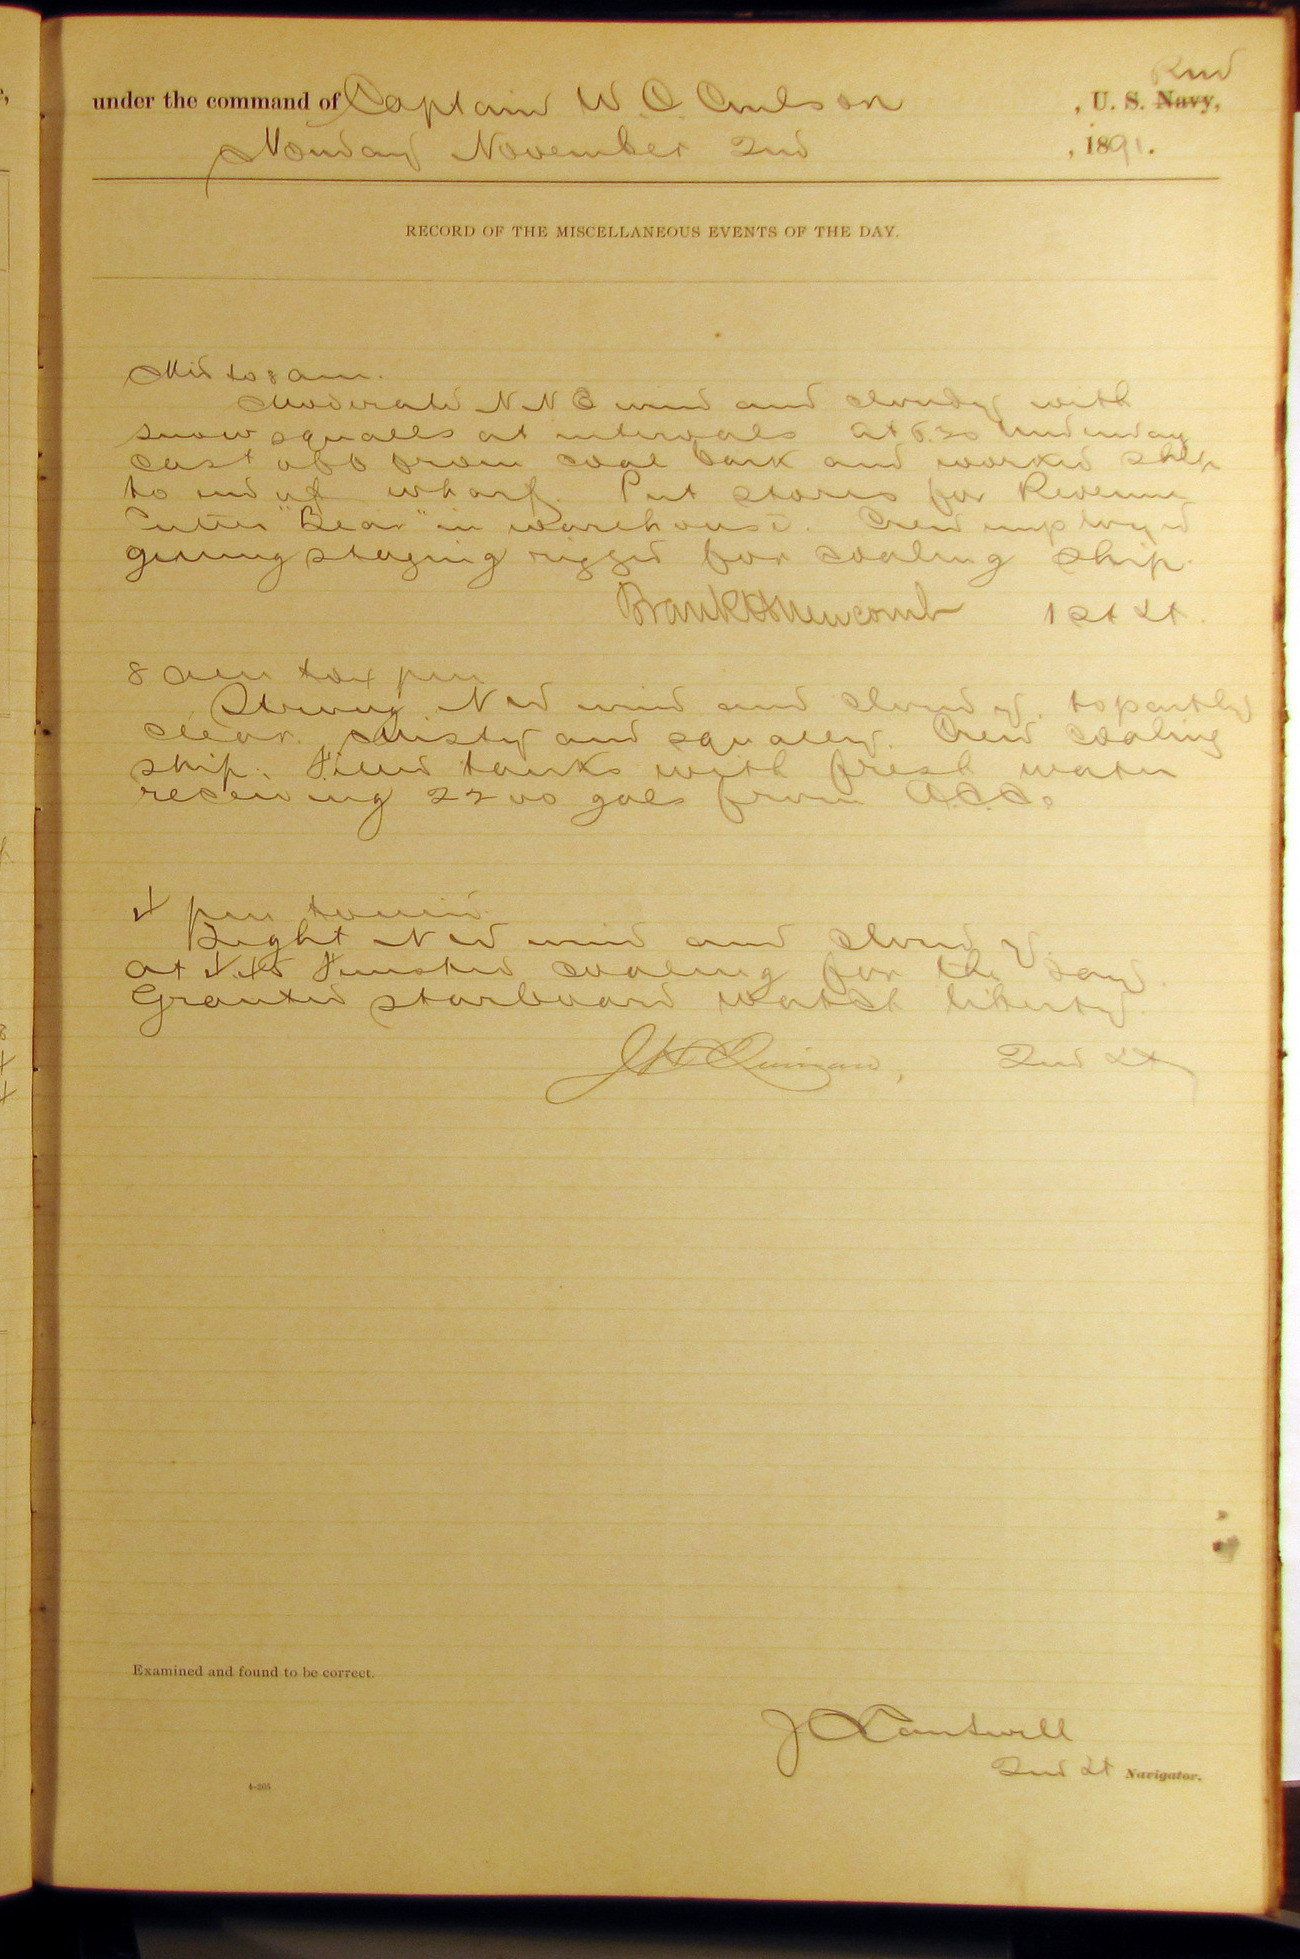 under the command of Captain W. C. Coulson , U. S. Navy, RM
Monday November 2nd , 1891.
RECORD OF THE MISCELLANEOUS EVENTS OF THE DAY.
Mid to 8 am.
Moderate N N E wind and cloudy with
snow squalls at intervals At 6.30
cast off from coal bark and worked ship
to end of wharf. Put stores for Revenue
Cutter "Bear" in warehouse. Crew employed
getting staging rigged for coaling ship.
Frank H Newcomb 1st Lt.
8 am to 4 pm
Strong N W wind and cloudy to partly
clear. Misty and squally. Crew coaling
ship. Filled tanks with fresh water
receiving 2200 gals from A.C.Co
4 pm to mid.
Light N W wind and cloudy.
at finished coaling for the day.
Granted starboard watch liberty.
J H Quinan, 2nd Lt
Examined and found to be correct.
J C Cantwell
2nd Lt Navigator.
4-265